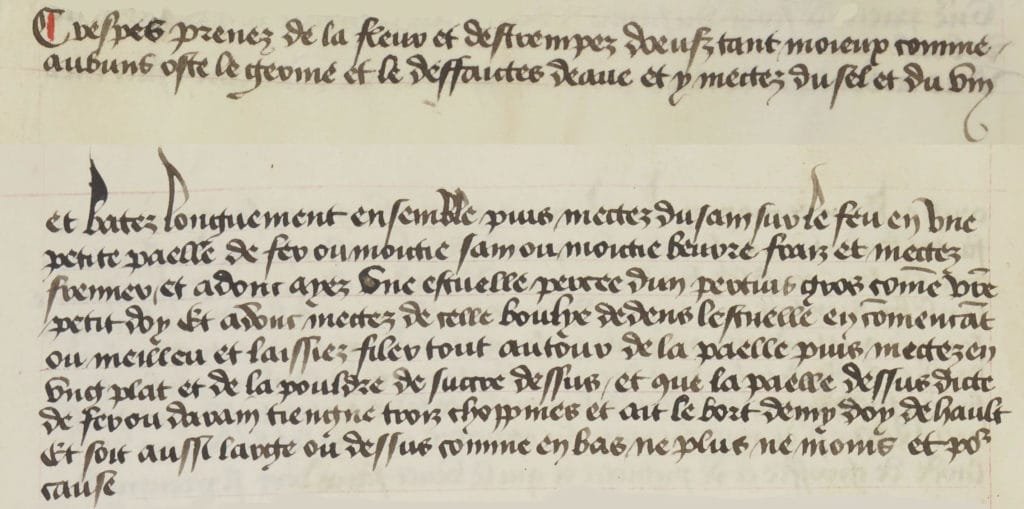 Crespes prenez de la fleur et destrempez doeufz tant moieux comme
aubuns oste le germe et le deffaictes deaue et y mectez du sel et du vin
et batez longuement ensemble puis mectez du sain sur le feu en vne
petite paelle de fer ou moictie sain ou moictie beurre fraiz et mectez
fremier, et adonc ayez vne escuelle percee dun pertuis gros com̄e vr̄e
petit doy Et adonc mectez de celle boulye dedens lescuelle en cōmencāt
ou meilleu et laissiez filer tout autour de la paelle puis mectez en
vng plat et de la pouldre de succre dessus, et que la paelle dessus dicte
de fer ou darain tiengne troiz choppines et ait le bort demy doy de hault
Et soit aussi large ou dessus comme en bas ne plus ne moins et po᷑
cause